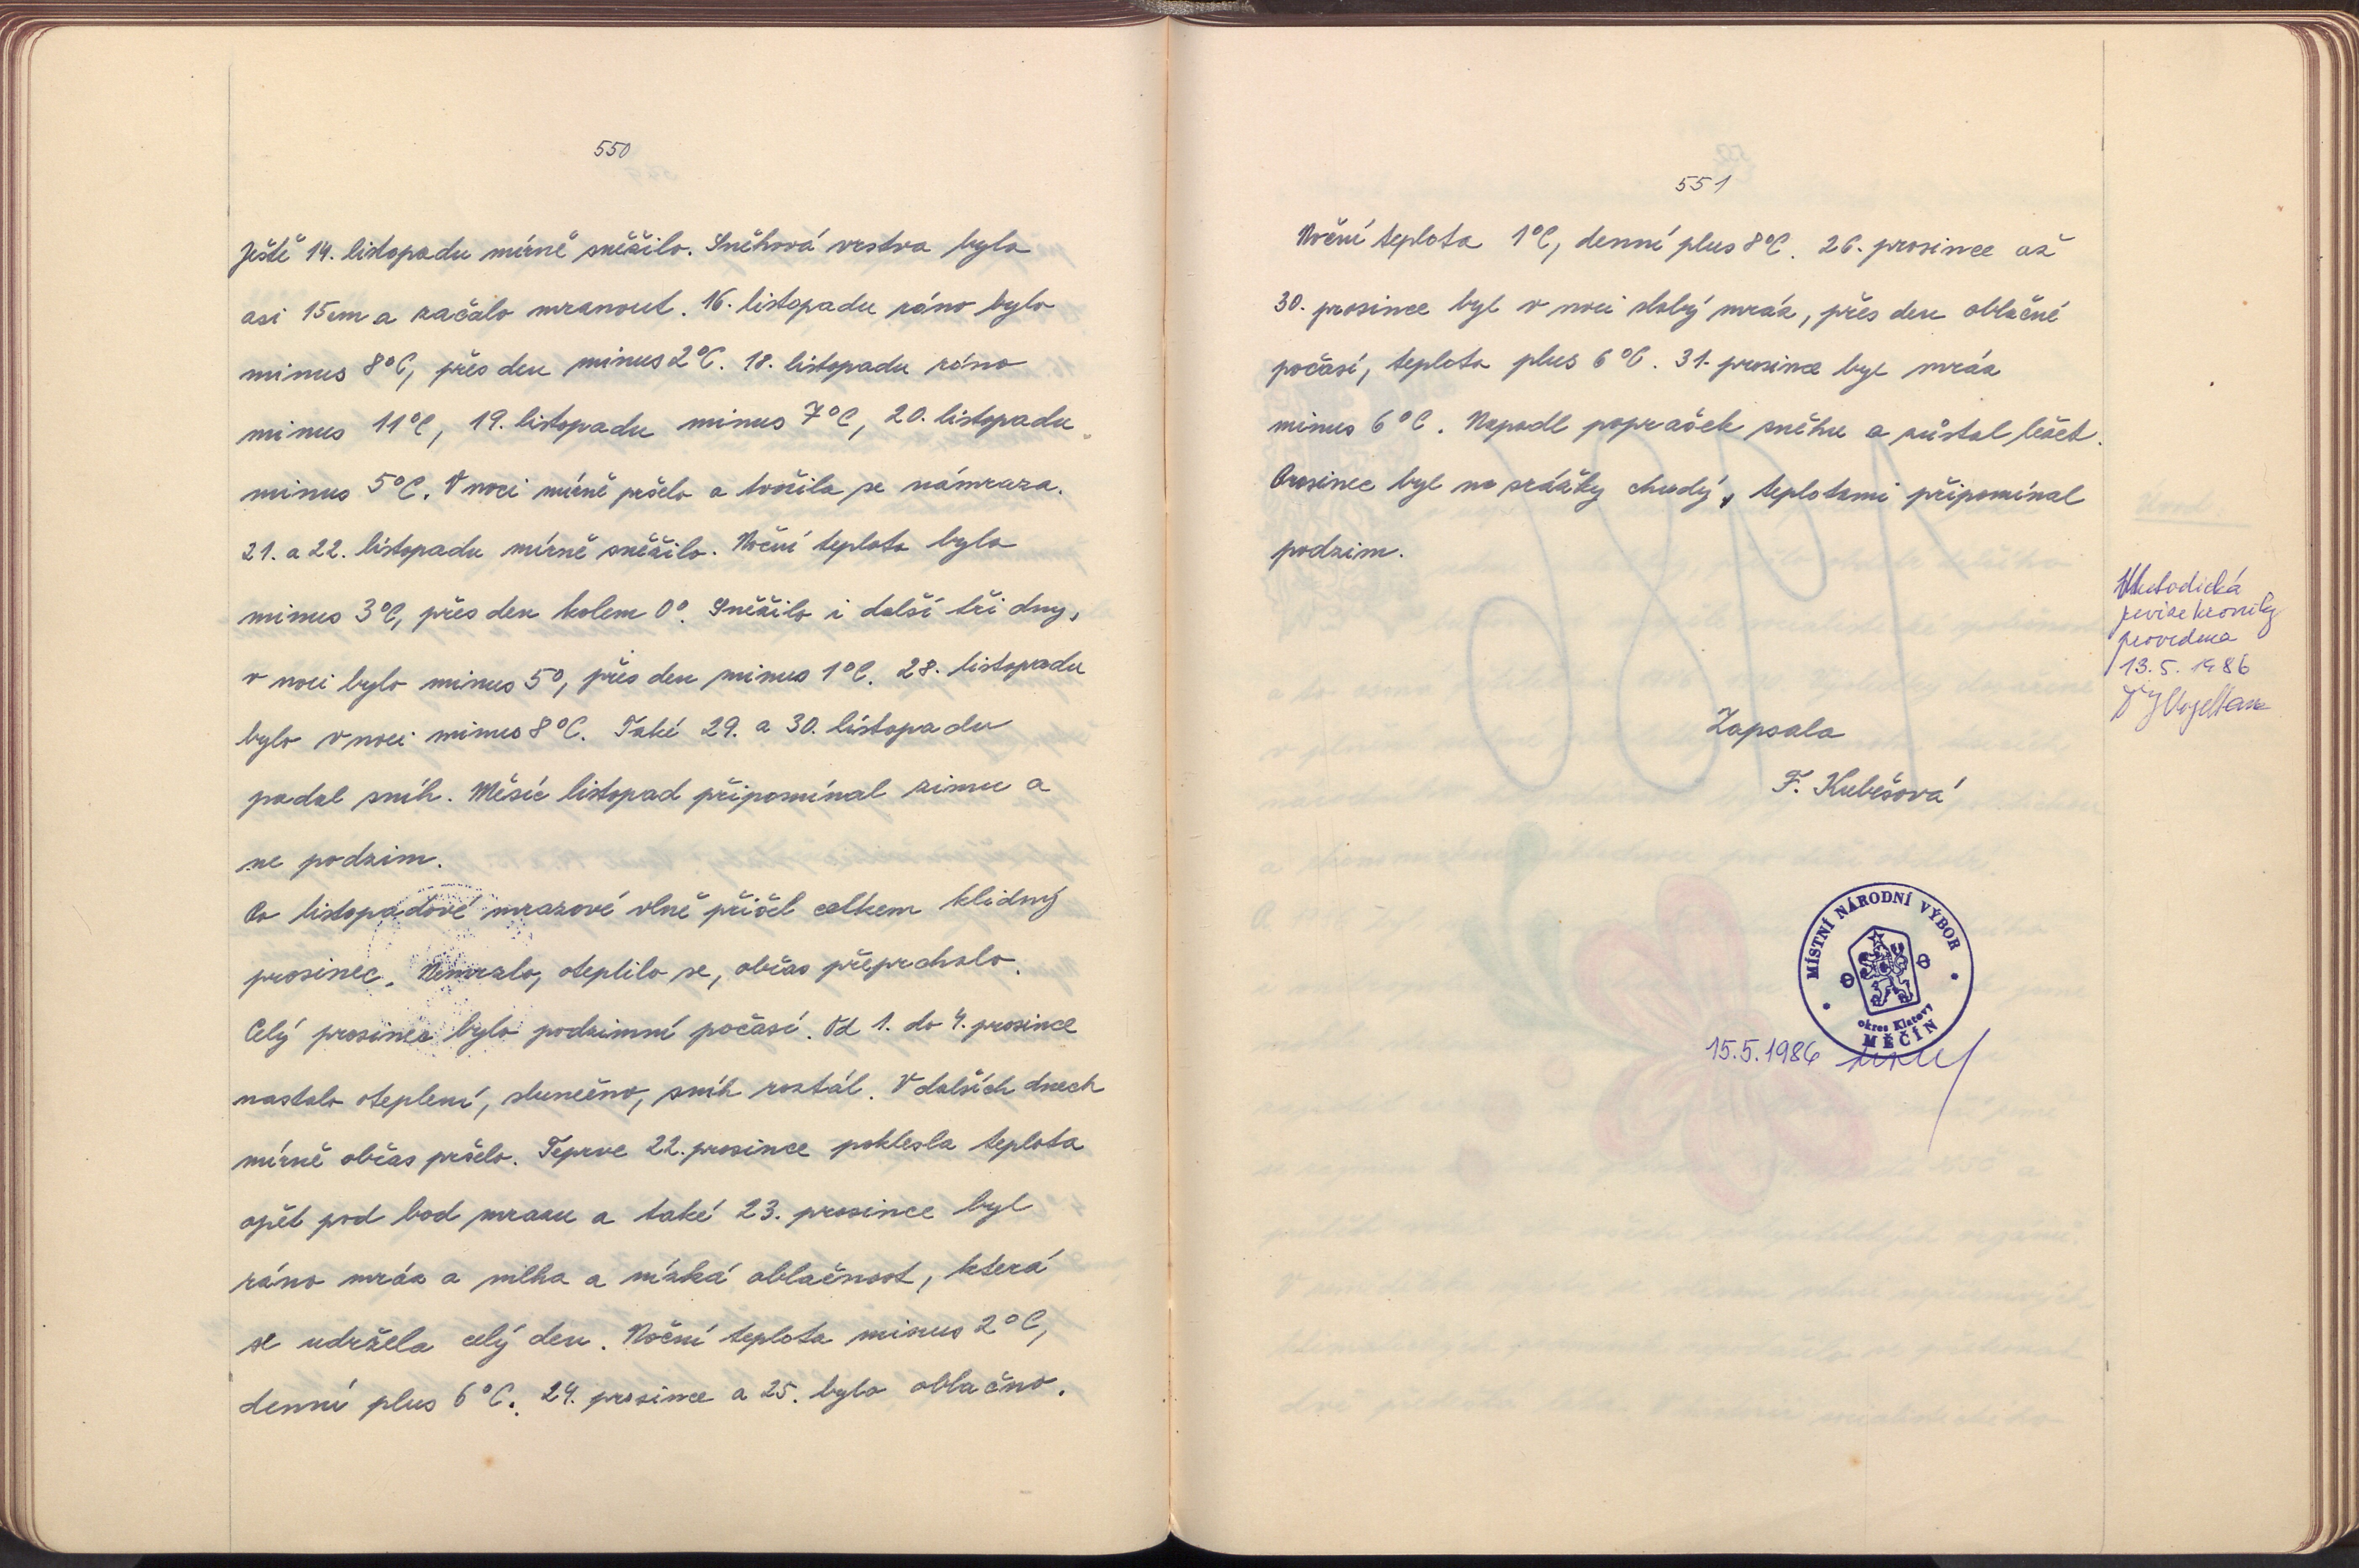 550
Ještě 14. listopadu mírně sněžilo. Sněhová vrstva byla
asi 15 cm a začalo mrznout. 16. listopadu ráno bylo
minus 8°C, přes den minus 2°C. 18. listopadu ráno
minus 11°C, 19. listopadu minus 7°C, 20. listopadu
minus 5°C. V noci mírně pršelo a tvořila se námraza.
21. a 22. listopadu mírně sněžilo. Noční teplota byla
minus 3°C, přes den kolem 0°. Sněžilo i další tři dny,
v noci bylo minus 5°, přes den minus 1°C. 28. listopadu
bylo v noci minus 8°C. Také 29. a 30. listopadu
padal sníh. Měsíc listopad připomínal zimu a
ne podzim.
Po listopadové mrazové vlně přišel celkem klidný
prosinec. Nemrzlo, oteplilo se, občas přeprchalo.
Celý prosinec bylo podzimní počasí. Od 1. do 4. prosince
nastalo oteplení, slunečno, sníh roztál. V dalších dnech
mírně občas pršelo. Teprve 22. prosince poklesla teplota
opět pod bod mrazu a také 23. prosince byl
ráno mráz a mlha a nízká oblačnost, která
se udržela celý den. Noční teplota minus 2°C,
denní plus 6°C. 24. prosince a 25. bylo oblačno.
551
Noční teplota 1°C, denní plus 8°C. 26. prosince až
30. prosince byl v noci slabý mráz, přes den oblačné
počasí, teplota plus 6°C. 31. prosince byl mráz
minus 6°C. Napadl poprašek sněhu a zůstal ležet.
Prosinec byl na srážky chudý, teplotami připomínal
podzim.
Metodická
revize kroniky
provedena
13. 5. 1986
Zapsala
F. Kubešová
MÍSTNÍ NÁRODNÍ VÝBOR
okres Klatovy
MĚČÍN
15. 5. 1986